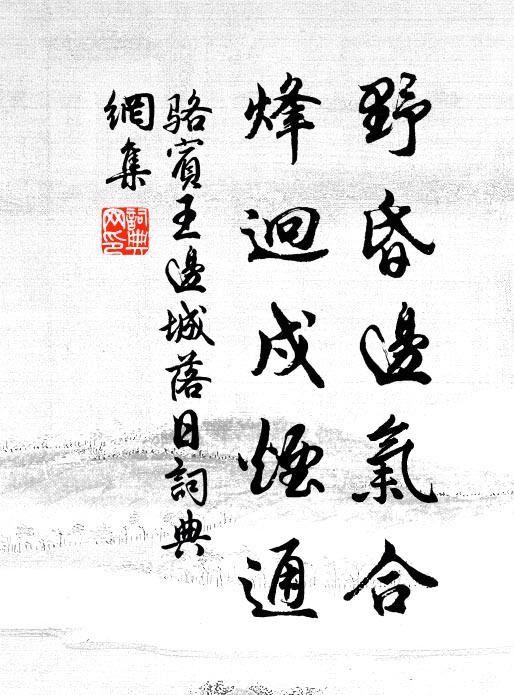 野昏邊氣合
烽迥戍煙通
駱賓王邊城落日詞典
網集
詞典
网印